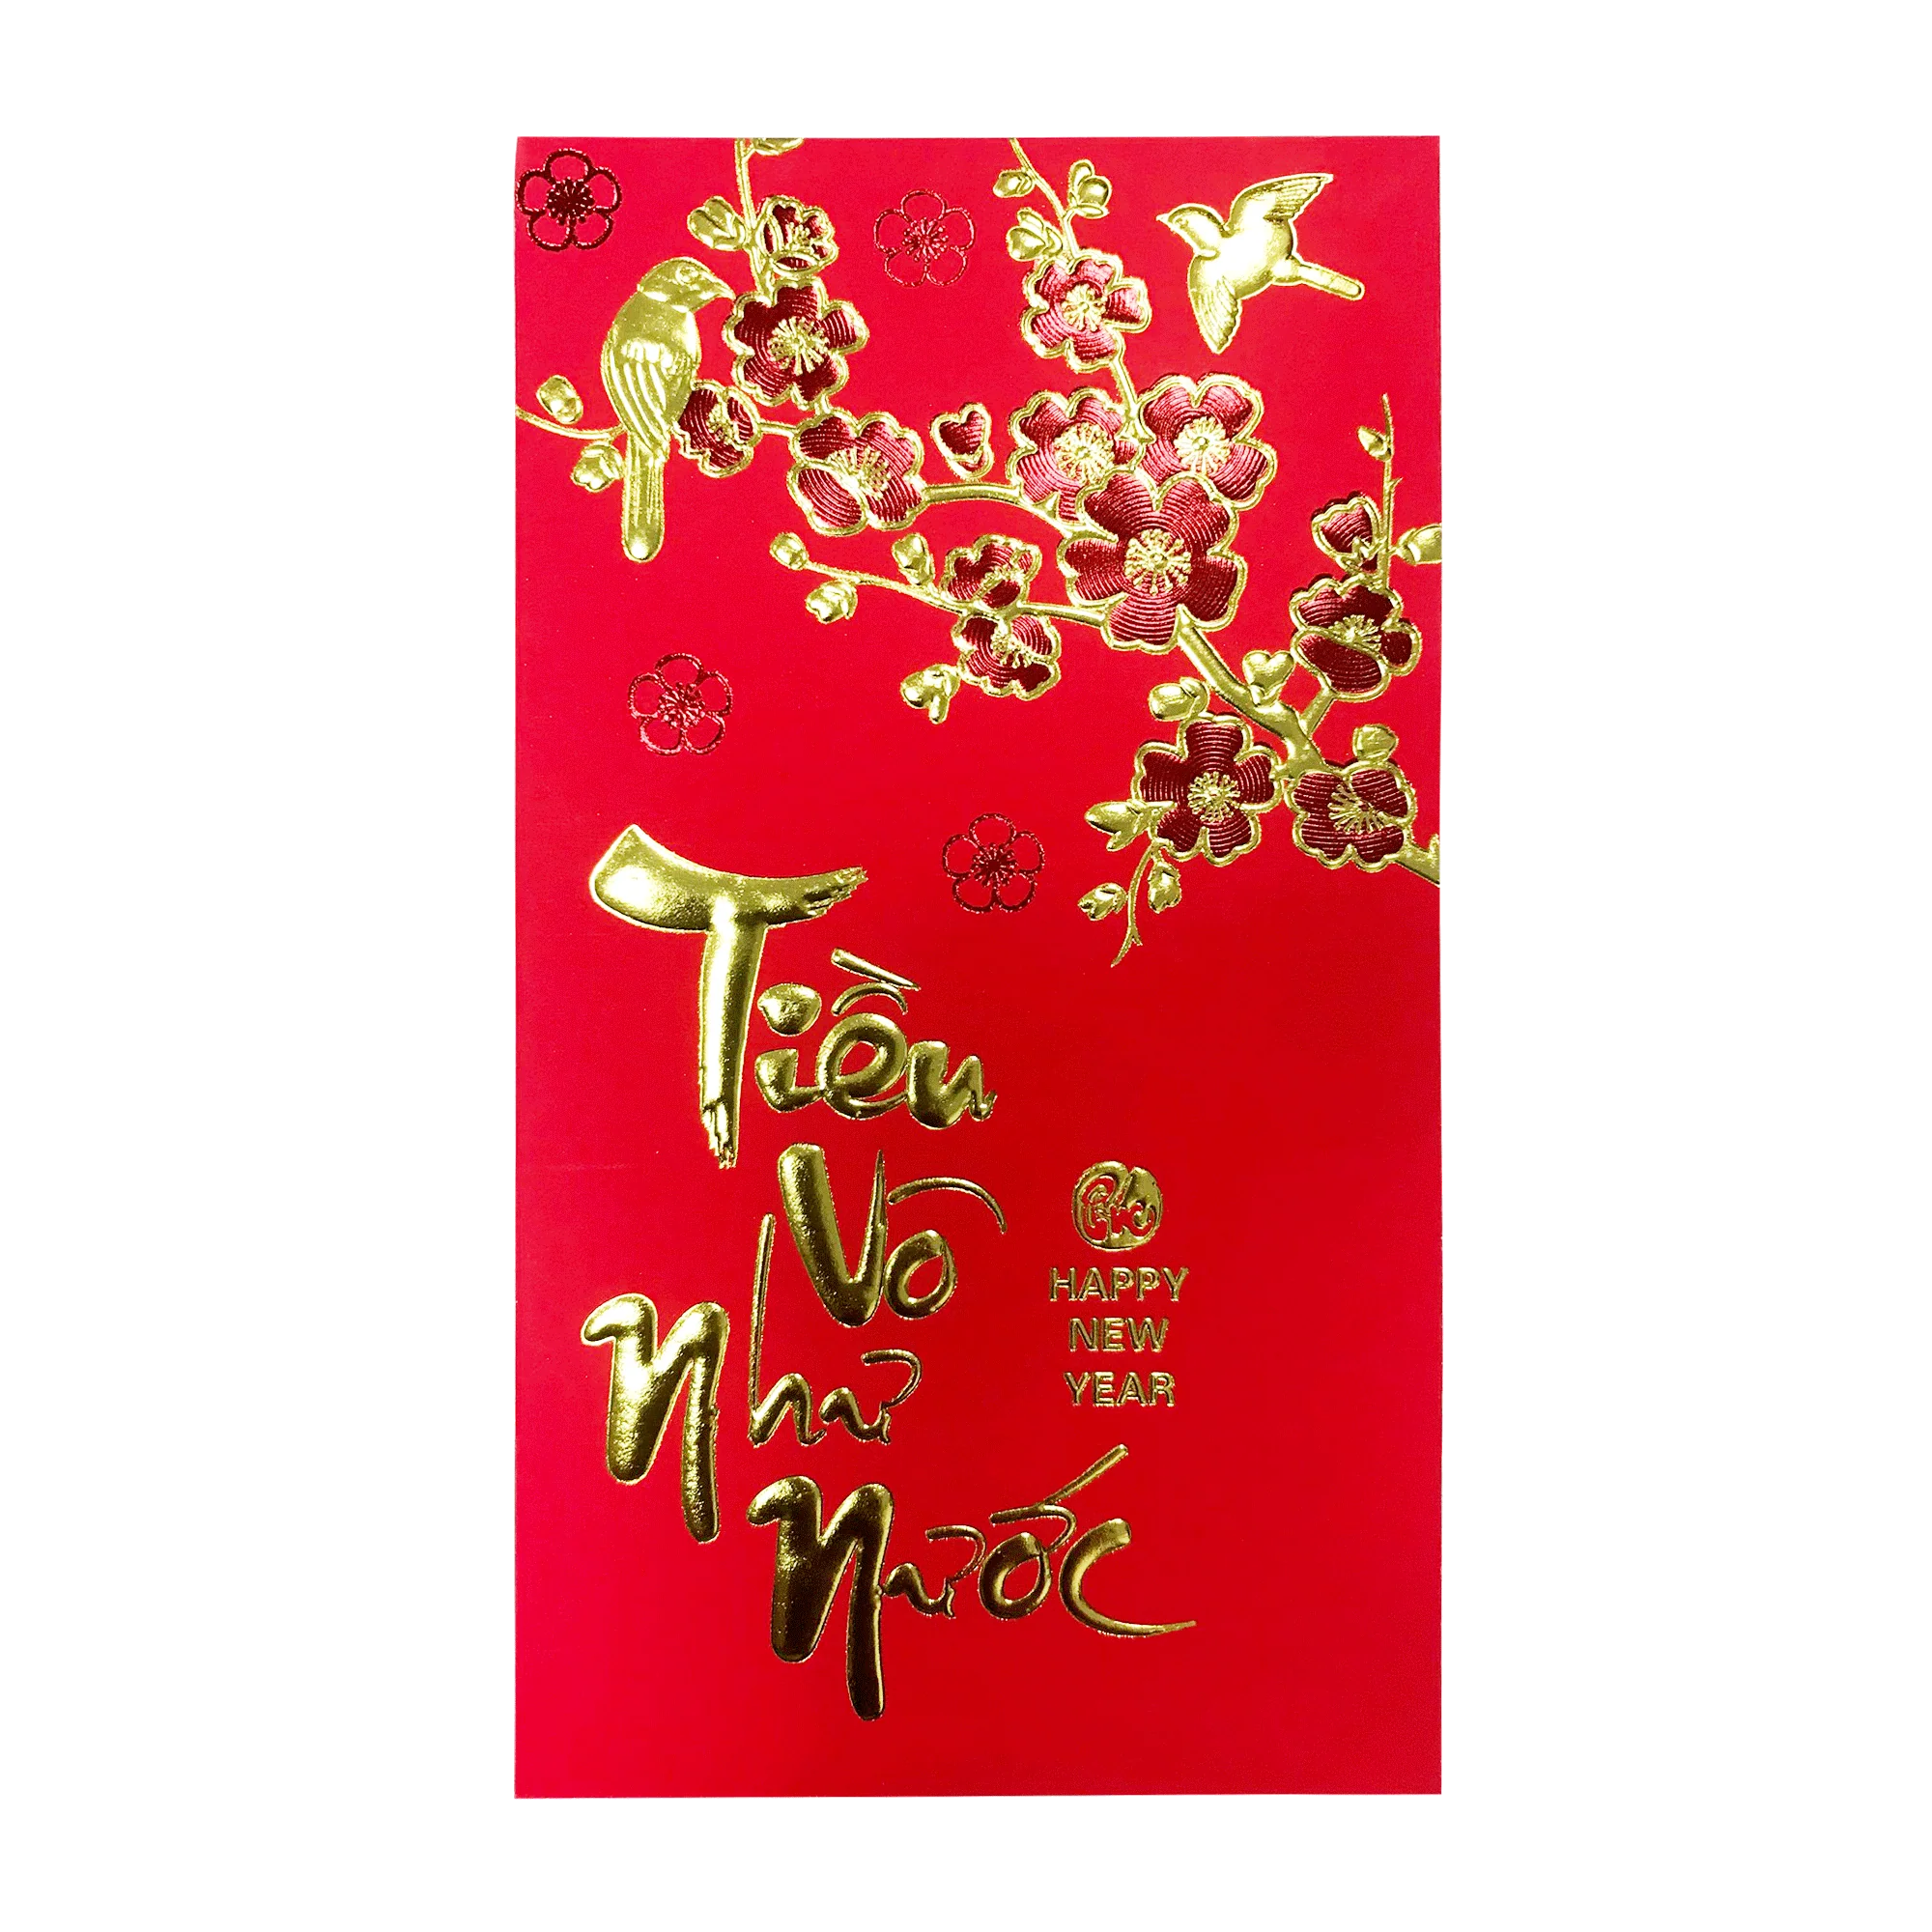 Tiền
Vô
Như
Nước
HAPPY
NEW
YEAR